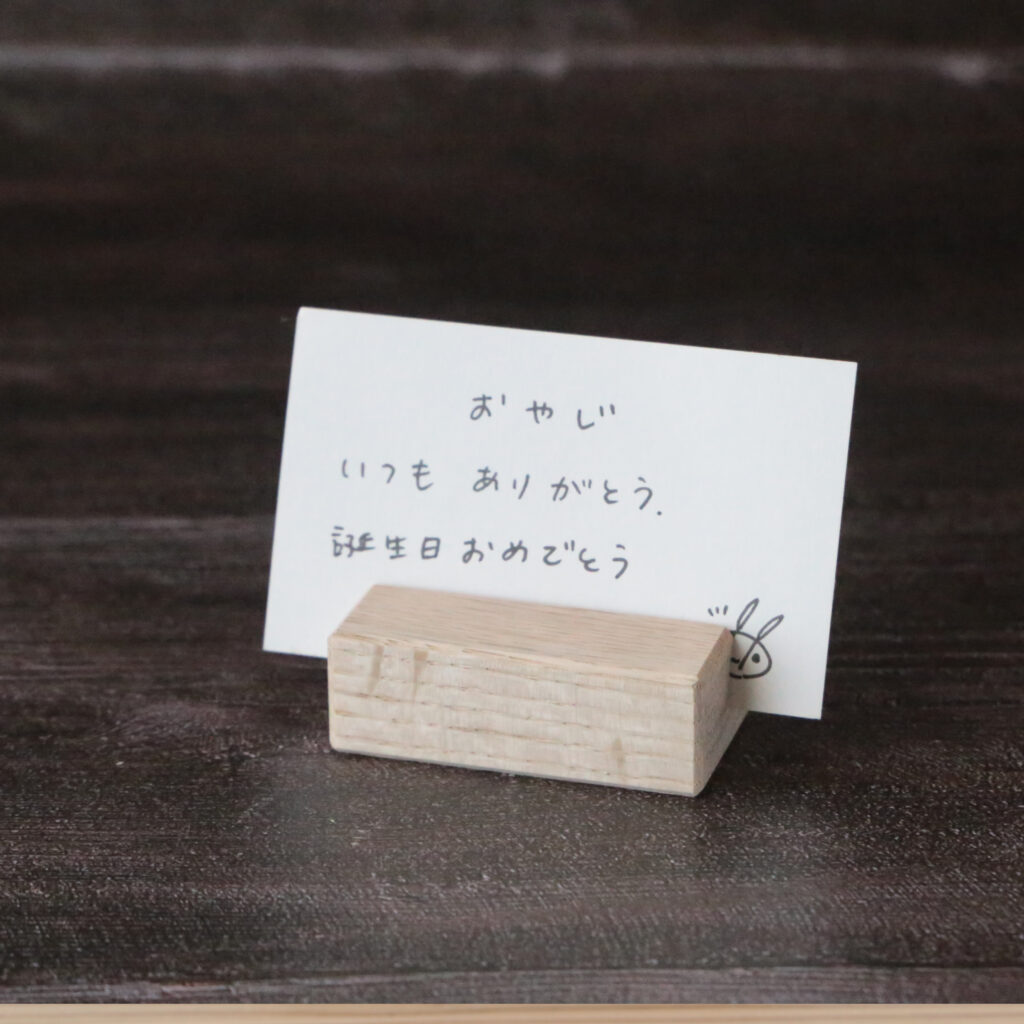 おやじ
いつも ありがとう.
誕生日おめでとう